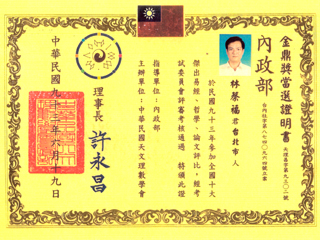 金鼎獎當選證明書
內政部
台內社字第八七四○九六四號立案
林榮福君台北市人
於民國九十三年參加全國十大
傑出易經、哲學、論文評比，經考
試委員會評審考核通過 特頒此證
指導單位：內政部
主辦單位：中華民國天文理數學會
理事長 許永昌
中華民國九十三年六月十九日